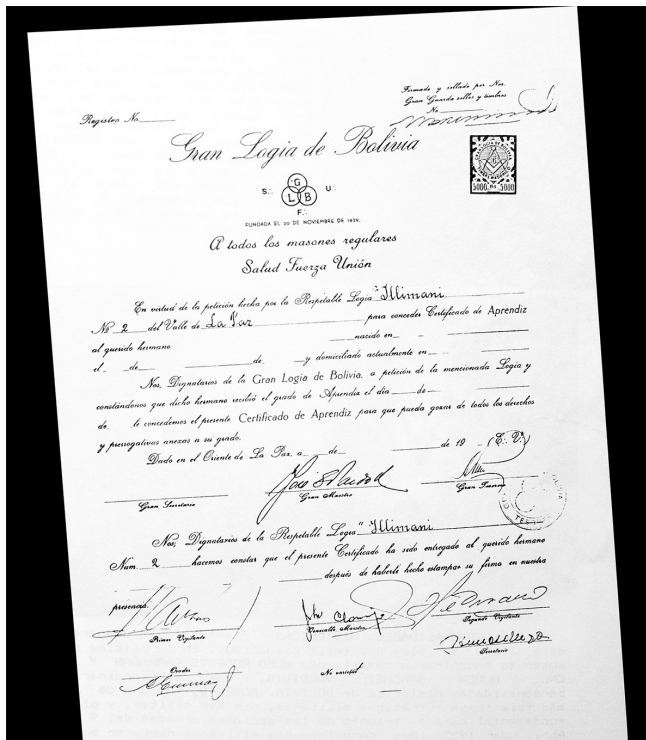 Firmado y sellado por Nos.
Gran Guarda sellos y timbres
Registro No.
No.
Gran Logia de Bolivia
G
S∴ L B U∴
F∴
5000 Bs. 5000
FUNDADA EL 20 DE NOVIEMBRE DE 1929.
A todos los masones regulares
Salud Fuerza Unión
En virtud de la petición hecha por la Respetable Logia "Illimani
Nº 2 del Valle de La Paz para conceder Certificado de Aprendiz
al querido hermano nacido en
el de de y domiciliado actualmente en
Nos, Dignatarios de la Gran Logia de Bolivia, a petición de la mencionada Logia y
constándonos que dicho hermano recibió el grado de Aprendiz el día de
de le concedemos el presente Certificado de Aprendiz para que pueda gozar de todos los derechos
y prerrogativas anexas a su grado.
Dado en el Oriente de La Paz, a de de 19 (E∴ V∴)
Gran Secretario Gran Maestro Gran Tesorero
Nos, Dignatarios de la Respetable Logia "Illimani
Num. 2 hacemos constar que el presente Certificado ha sido entregado al querido hermano
después de haberle hecho estampar su firma en nuestra
presencia.
Primer Vigilante Venerable Maestro Segundo Vigilante
Secretario
Orador Ne varietur